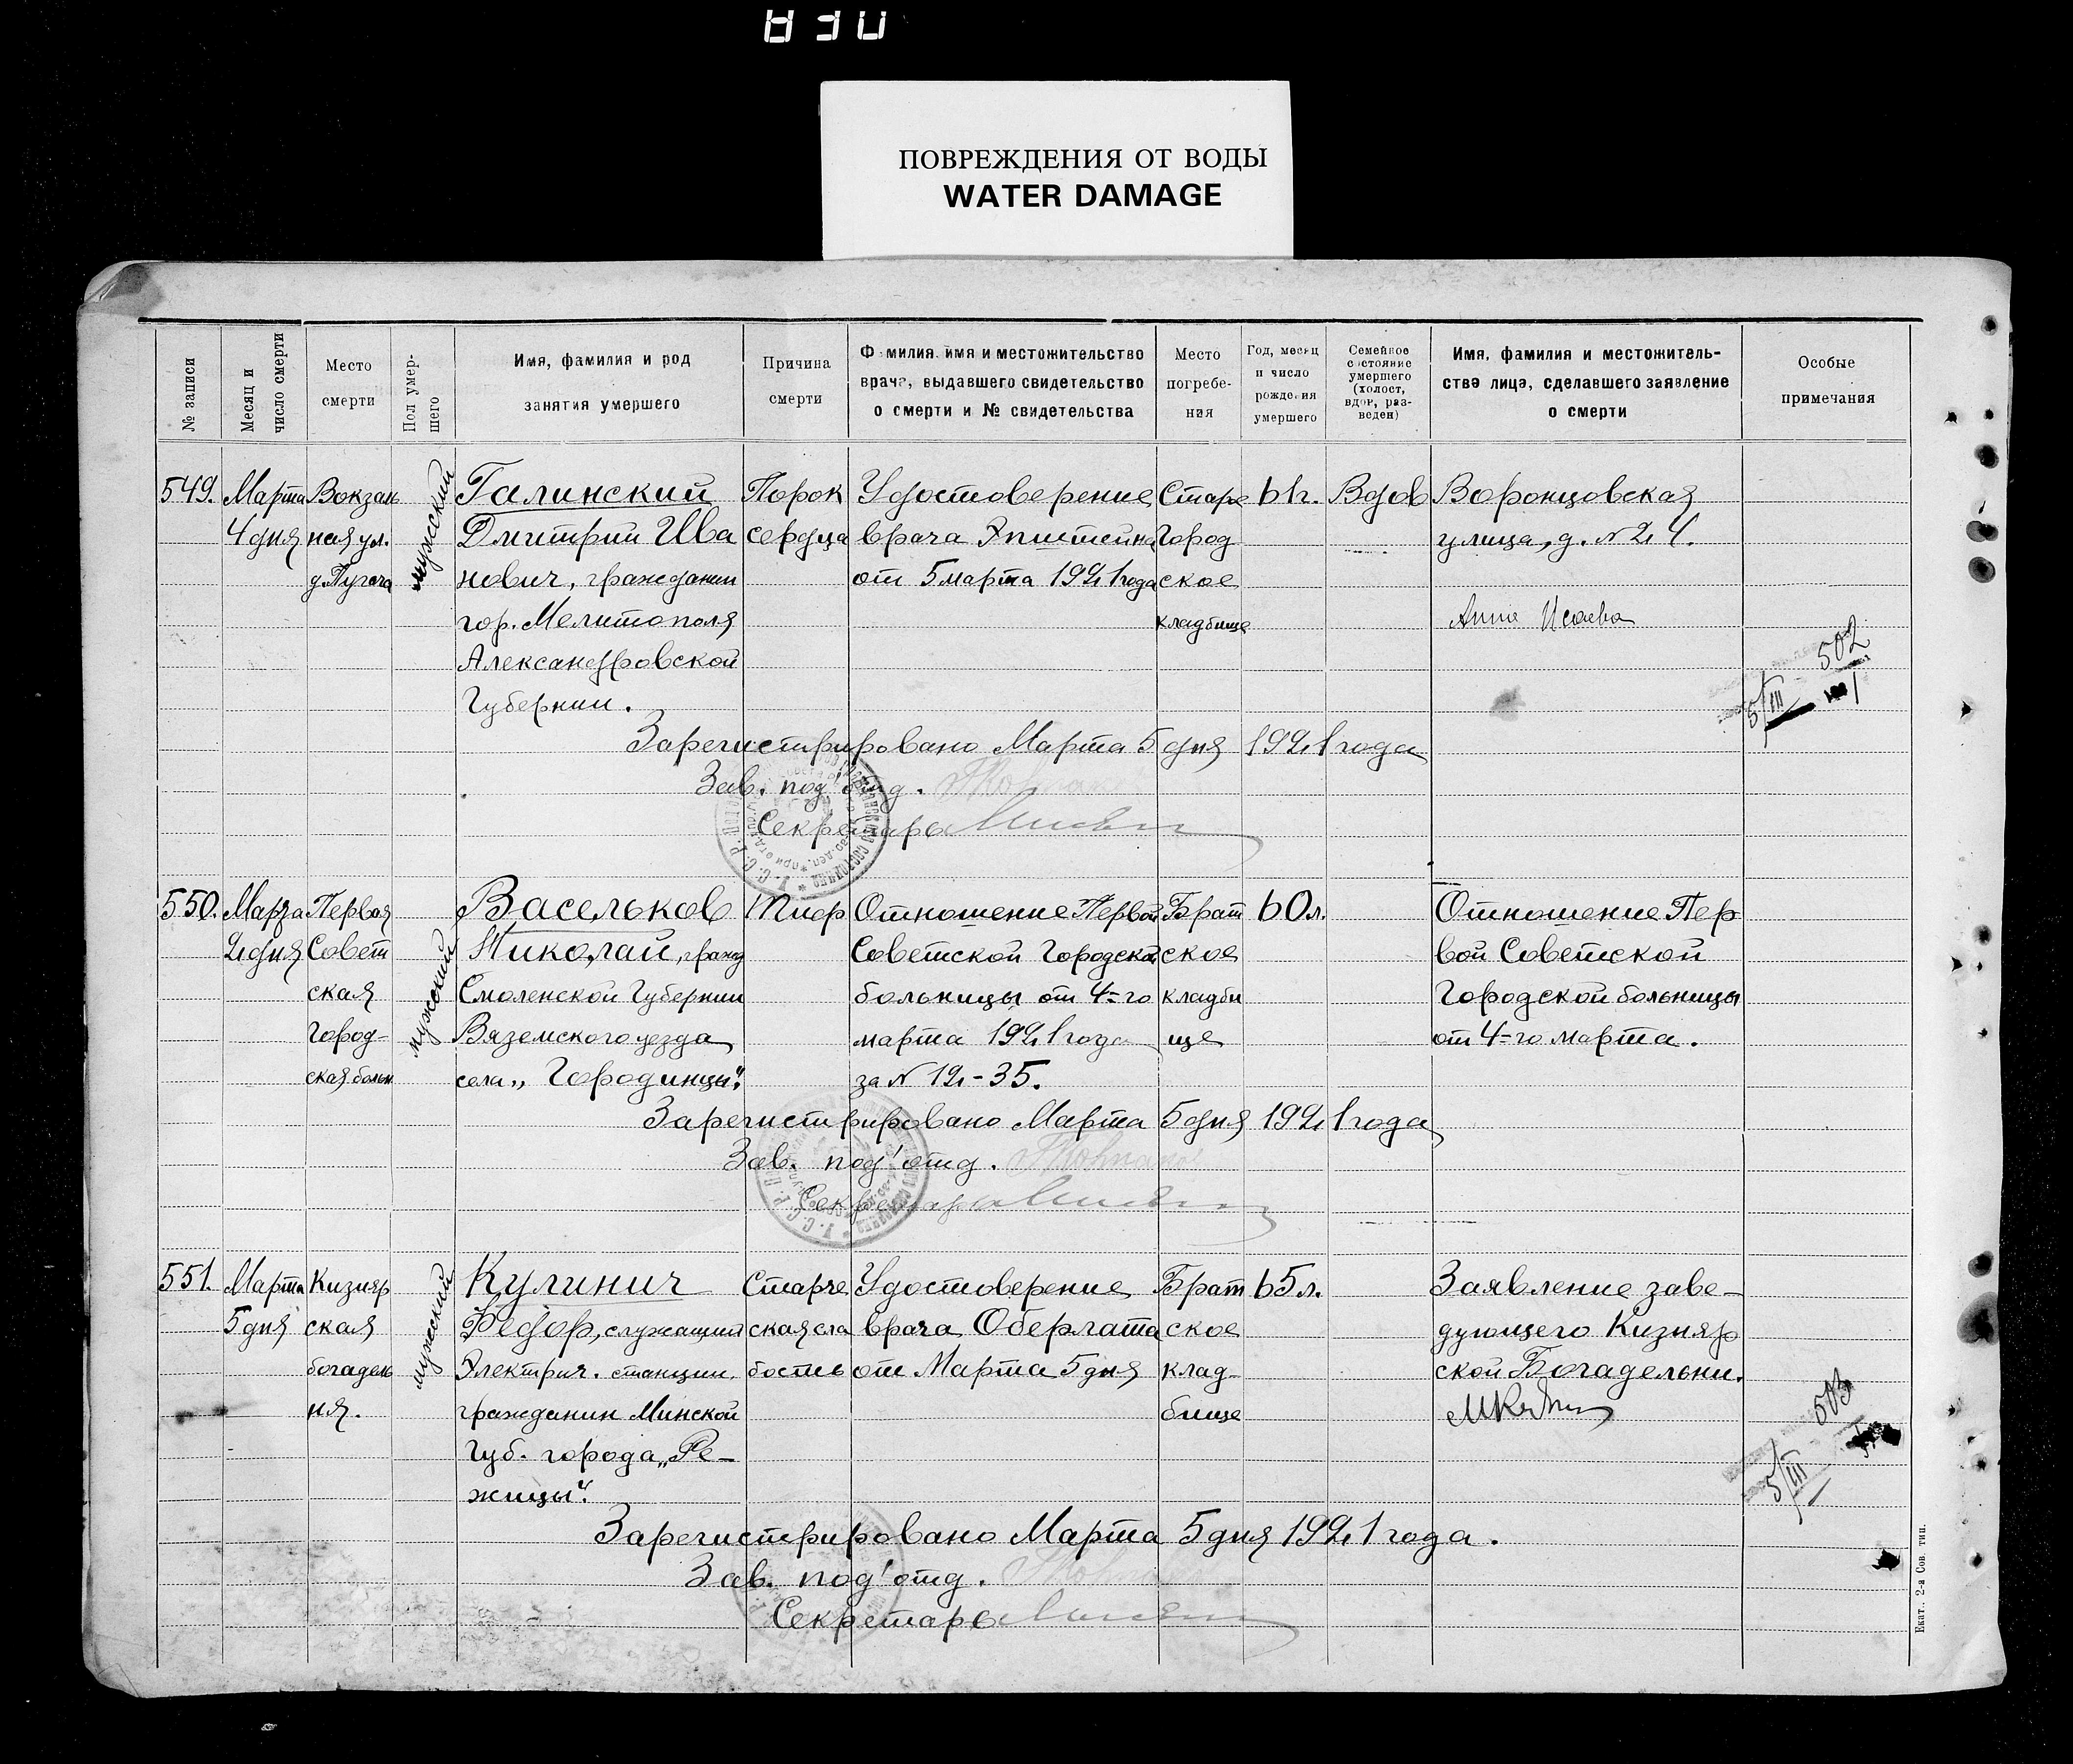 ПОВРЕЖДЕНИЯ ОТ ВОДЫ
WATER DAMAGE
№ записи
Месяц и
число смерти
Место
смерти
Пол умер-
шего
Имя, фамилия и род
занятия умершего
Причина
смерти
Фамилия, имя и местожительство
врача, выдавшего свидетельство
о смерти и № свидетельства
Место
погребе-
ния
Год, месяц
и число
рождения
умершего
Семейное
состояние
умершего
(холост,
вдов, раз-
веден)
Имя, фамилия и местожитель-
ство лица, сделавшего заявление
о смерти
Особые
примечания
549.
Марта
4 дня
Вокзаль
ная ул.
д. Пугача
мужской
Галинский
Дмитрий Ива
нович, гражданин
гор. Мелитополя
Александровской
Губернии.
Порок
сердца
Удостоверение
врача Эпштейна
от 5 марта 1921 года
Старо
Город
ское
кладбище
61 г.
Вдов
Воронцовская
улица, д. № 24.
Анна Исаева
502
5/III
Зарегистрировано Марта 5 дня 1921 года
Зав. под'отд.
Секретарь
550.
Марта
2 дня
Первая
Совет
ская
Город-
ская больн
мужской
Васельков
Николай, гражд
Смоленской Губернии
Вяземского уезда
села „Городинцы".
Тиф
Отношение Первой
Советской Городской
больницы от 4-го
марта 1921 года
за № 12-35.
Брат
ское
кладби
ще
60 л.
Отношение Пер
вой Советской
Городской больницы
от 4-го марта.
Зарегистрировано Марта 5 дня 1921 года
Зав. под'отд.
Секретарь
551.
Марта
5 дня
Кизияр
ская
богадель
ня.
мужской
Кулинич
Федор, служащий
Электрич. станции,
гражданин Минской
Губ. города „Ре-
жицы".
Старче
ская сла
бость
Удостоверение
врача Оберлата
от Марта 5 дня
Брат
ское
клад-
бище
65 л.
Заявление заве-
дующего Кизияр
ской Богадельни.
503
5/III
Зарегистрировано Марта 5 дня 1921 года.
Зав. под'отд.
Секретарь
Екат., 2-я Сов. тип.